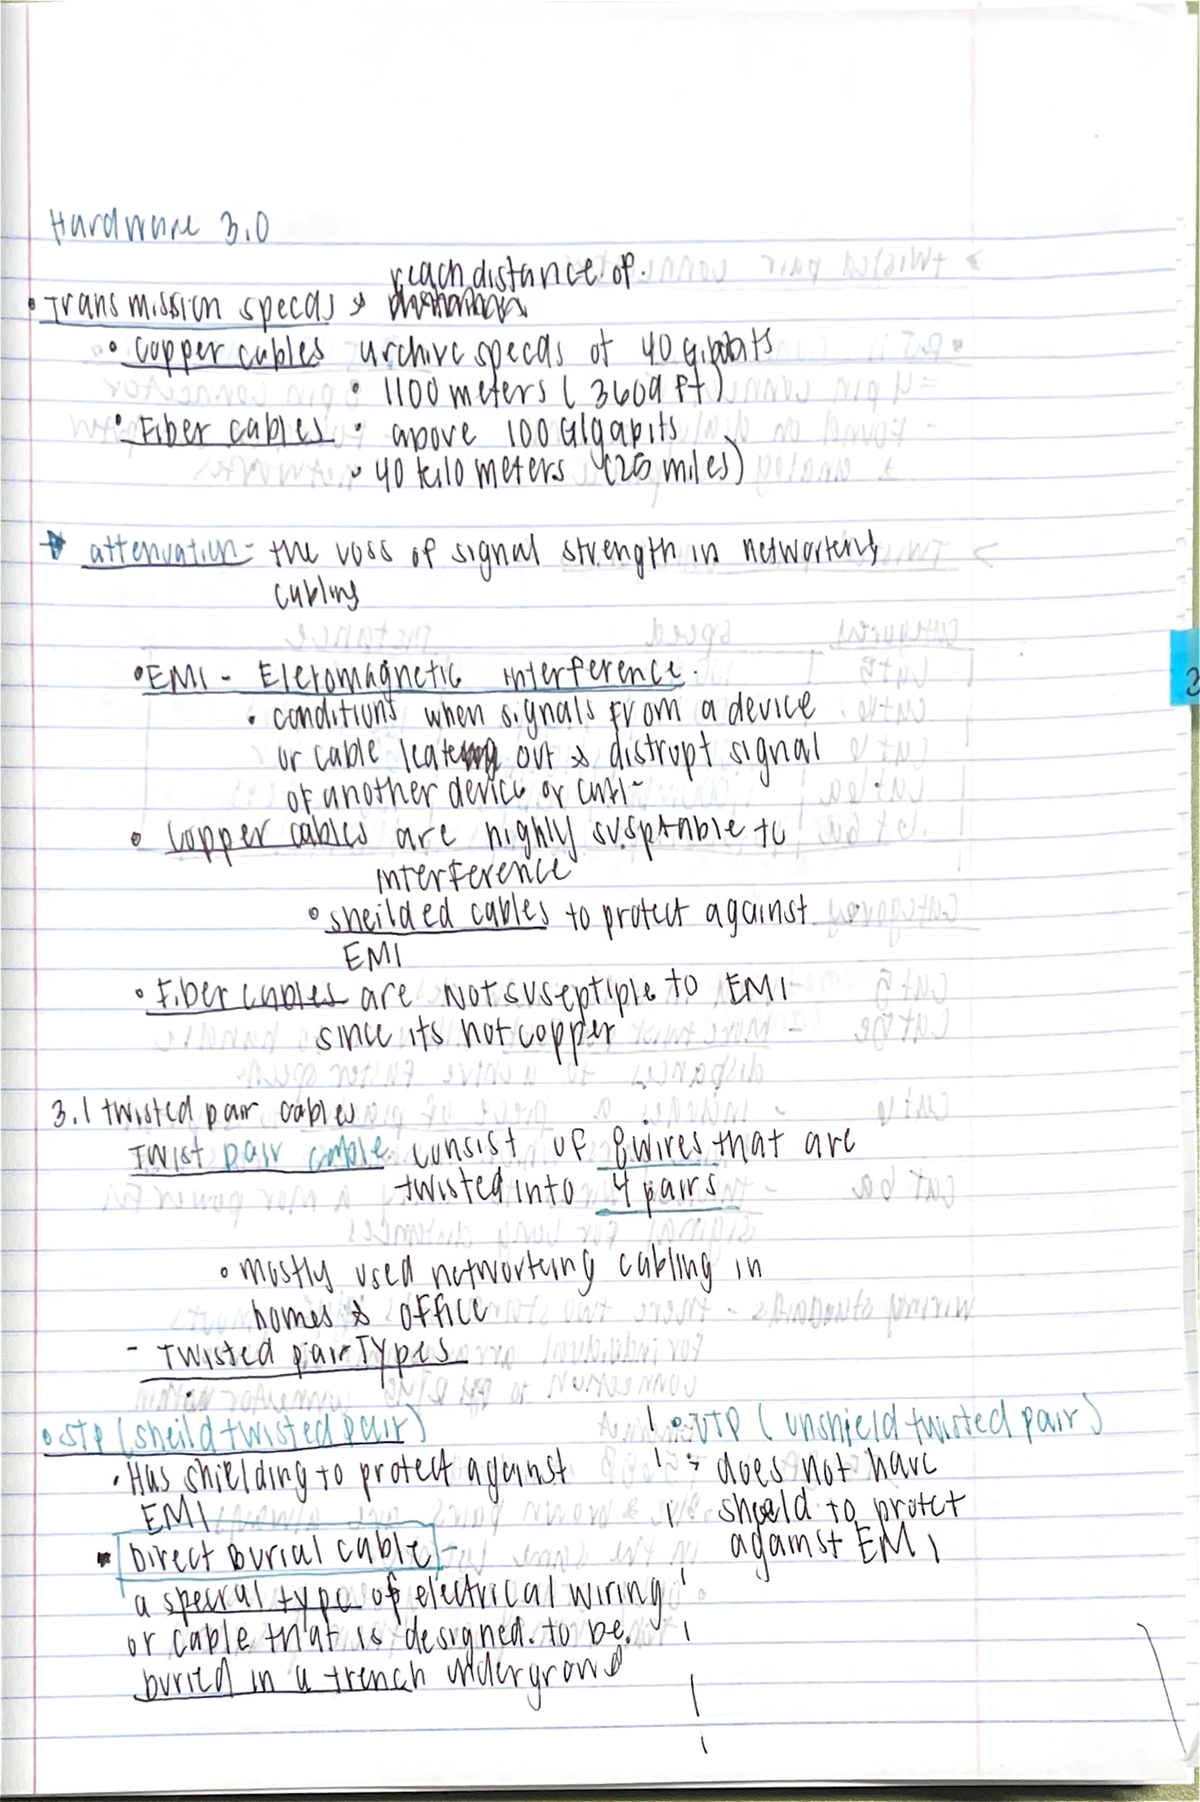 Hardware 3.0
reach distance of.
• Transmission speeds &
• copper cables archive speeds of 40 Gigabits
• 1100 meters ( 3609 ft )
• Fiber cables • above 100 Gigabits
• 40 kilo meters (25 miles)
attenuation - the loss of signal strength in networking
cabling
• EMI - Eletromagnetic interference.
• conditions when signals from a device
or cable leaking out & distrupt signal
of another device or
• copper cables are highly susptable to
interference
• sheilded cables to protect against
EMI
• Fiber cables are not suseptiple to EMI
since its not copper
3.1 twisted pair cables
Twist pair cable consist of 8 wires that are
twisted into 4 pairs
• mostly used networking cabling in
homes & office
- Twisted pair Types
• STP (sheild twisted pair) • UTP ( unshield twisted pair )
• Has shielding to protect against • does not have
EMI sheeld to protect
• Direct Burial cable - against EMI
a special type of electrical wiring
or cable that is designed. to be.
buried in a trench underground
3